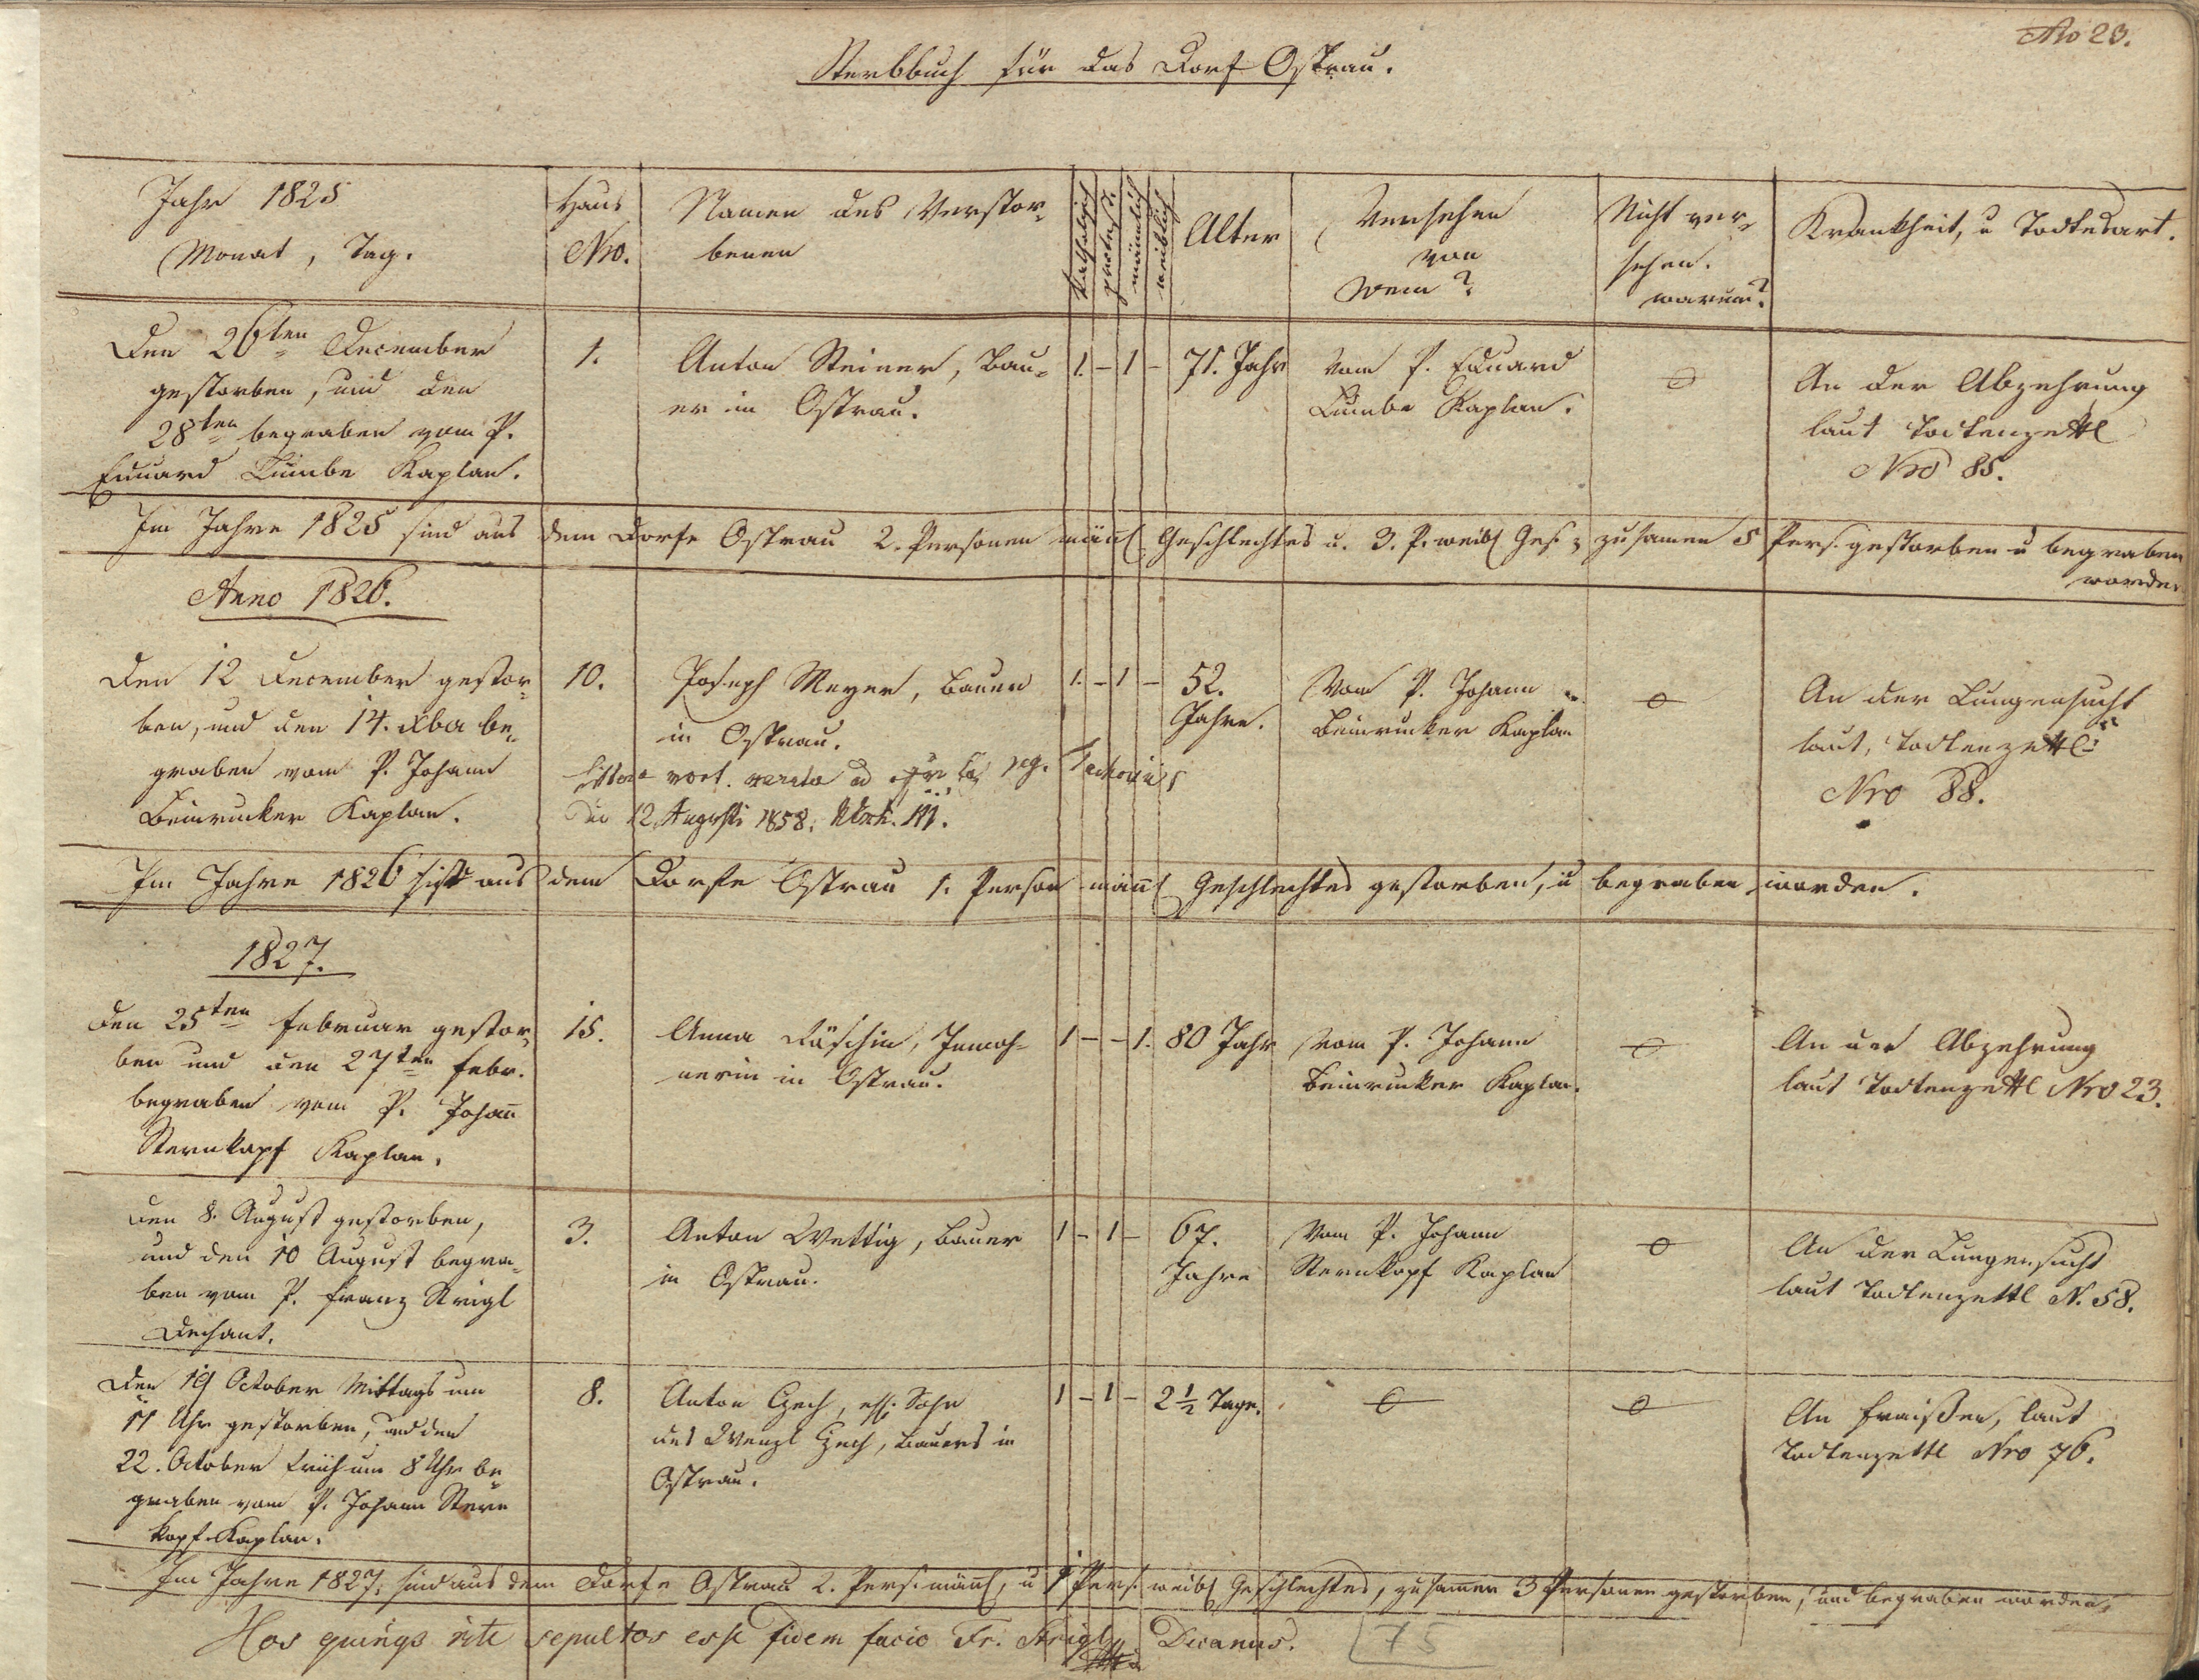 No 23.
Sterbbuch für das Dorf Ostrau.
Jahr 1825
Monat, Tag.
Haus
Nro.
Namen des Verstor-
benen
katholisch
protest.
männlich
weiblich
Alter
Versehen
von
wem?
Nicht ver-
sehen.
warum?
Krankheit, u Todtesart.
Den 26ten December
gestorben, und den
28ten begraben vom P.
Eduard Kaplan.
1.
Anton Steiner, Bau-
er in Ostrau.
1. – 1 –
71. Jahr
Vom P. Eduard
Kaplan.
o
An der Abzehrung
laut Todtenzettl
Nro 85.
Im Jahre 1825 sind aus dem Dorfe Ostrau 2. Personen mänl Geschlechtes u. 3. P. weibl Ges. zusamen 5 Pers. gestorben u begraben
worden
Anno 1826.
Den 12 December gestor-
ben, und den 14. Xba be-
graben vom P. Johann
Beinrucker Kaplan.
10.
Joseph Meyer, Bauer
in Ostrau.
mort.
12. Augusti 1858.
1. – 1 –
52.
Jahre.
Vom P. Johann
Beinrucker Kaplan
o
An der Lungensucht
laut, Todtenzettl
Nro 88.
Im Jahre 1826 ist aus dem Dorfe Ostrau 1. Person mänl Geschlechtes gestorben, u begraben worden.
1827.
Den 25ten Februar gestor-
ben und den 27ten Febr.
begraben vom P. Johan̄
Sternkopf Kaplan.
15.
Anna Inwoh-
nerin in Ostrau.
1 – – 1.
80 Jahr
Vom P. Johann
Beinrucker Kaplan.
o
An der Abzehrung
laut Todtenzettl Nro 23.
Den 8. August gestorben,
und den 10 August begra-
ben vom P. Franz Strigl
Dechant.
3.
Anton Wettig, Bauer
in Ostrau.
1 – 1 –
67.
Jahre
Vom P. Johann
Sternkopf Kaplan
o
An der Lungensucht
laut Todtenzettl N. 58.
Den 19 October Mittags um
11 Uhr gestorben, und den
22. October früh um 8 Uhr be-
graben vom P. Johann Stern
kopf Kaplan.
8.
Anton Czech, Sohn
des Wenzl Czech, Bauers in
Ostrau.
1 – 1 –
2 ½ Tage.
o
o
An Fraißen, laut
Todtenzettl Nro 76.
Im Jahre 1827. sind aus dem Dorfe Ostrau 2. Pers. mänl, u 1 Pers. weibl Geschlechtes, zusammen 3 Personen gestorben, und begraben worden,
Hos quinqs rite sepultos esse fidem facio Fr. Strigl Decanus.
75